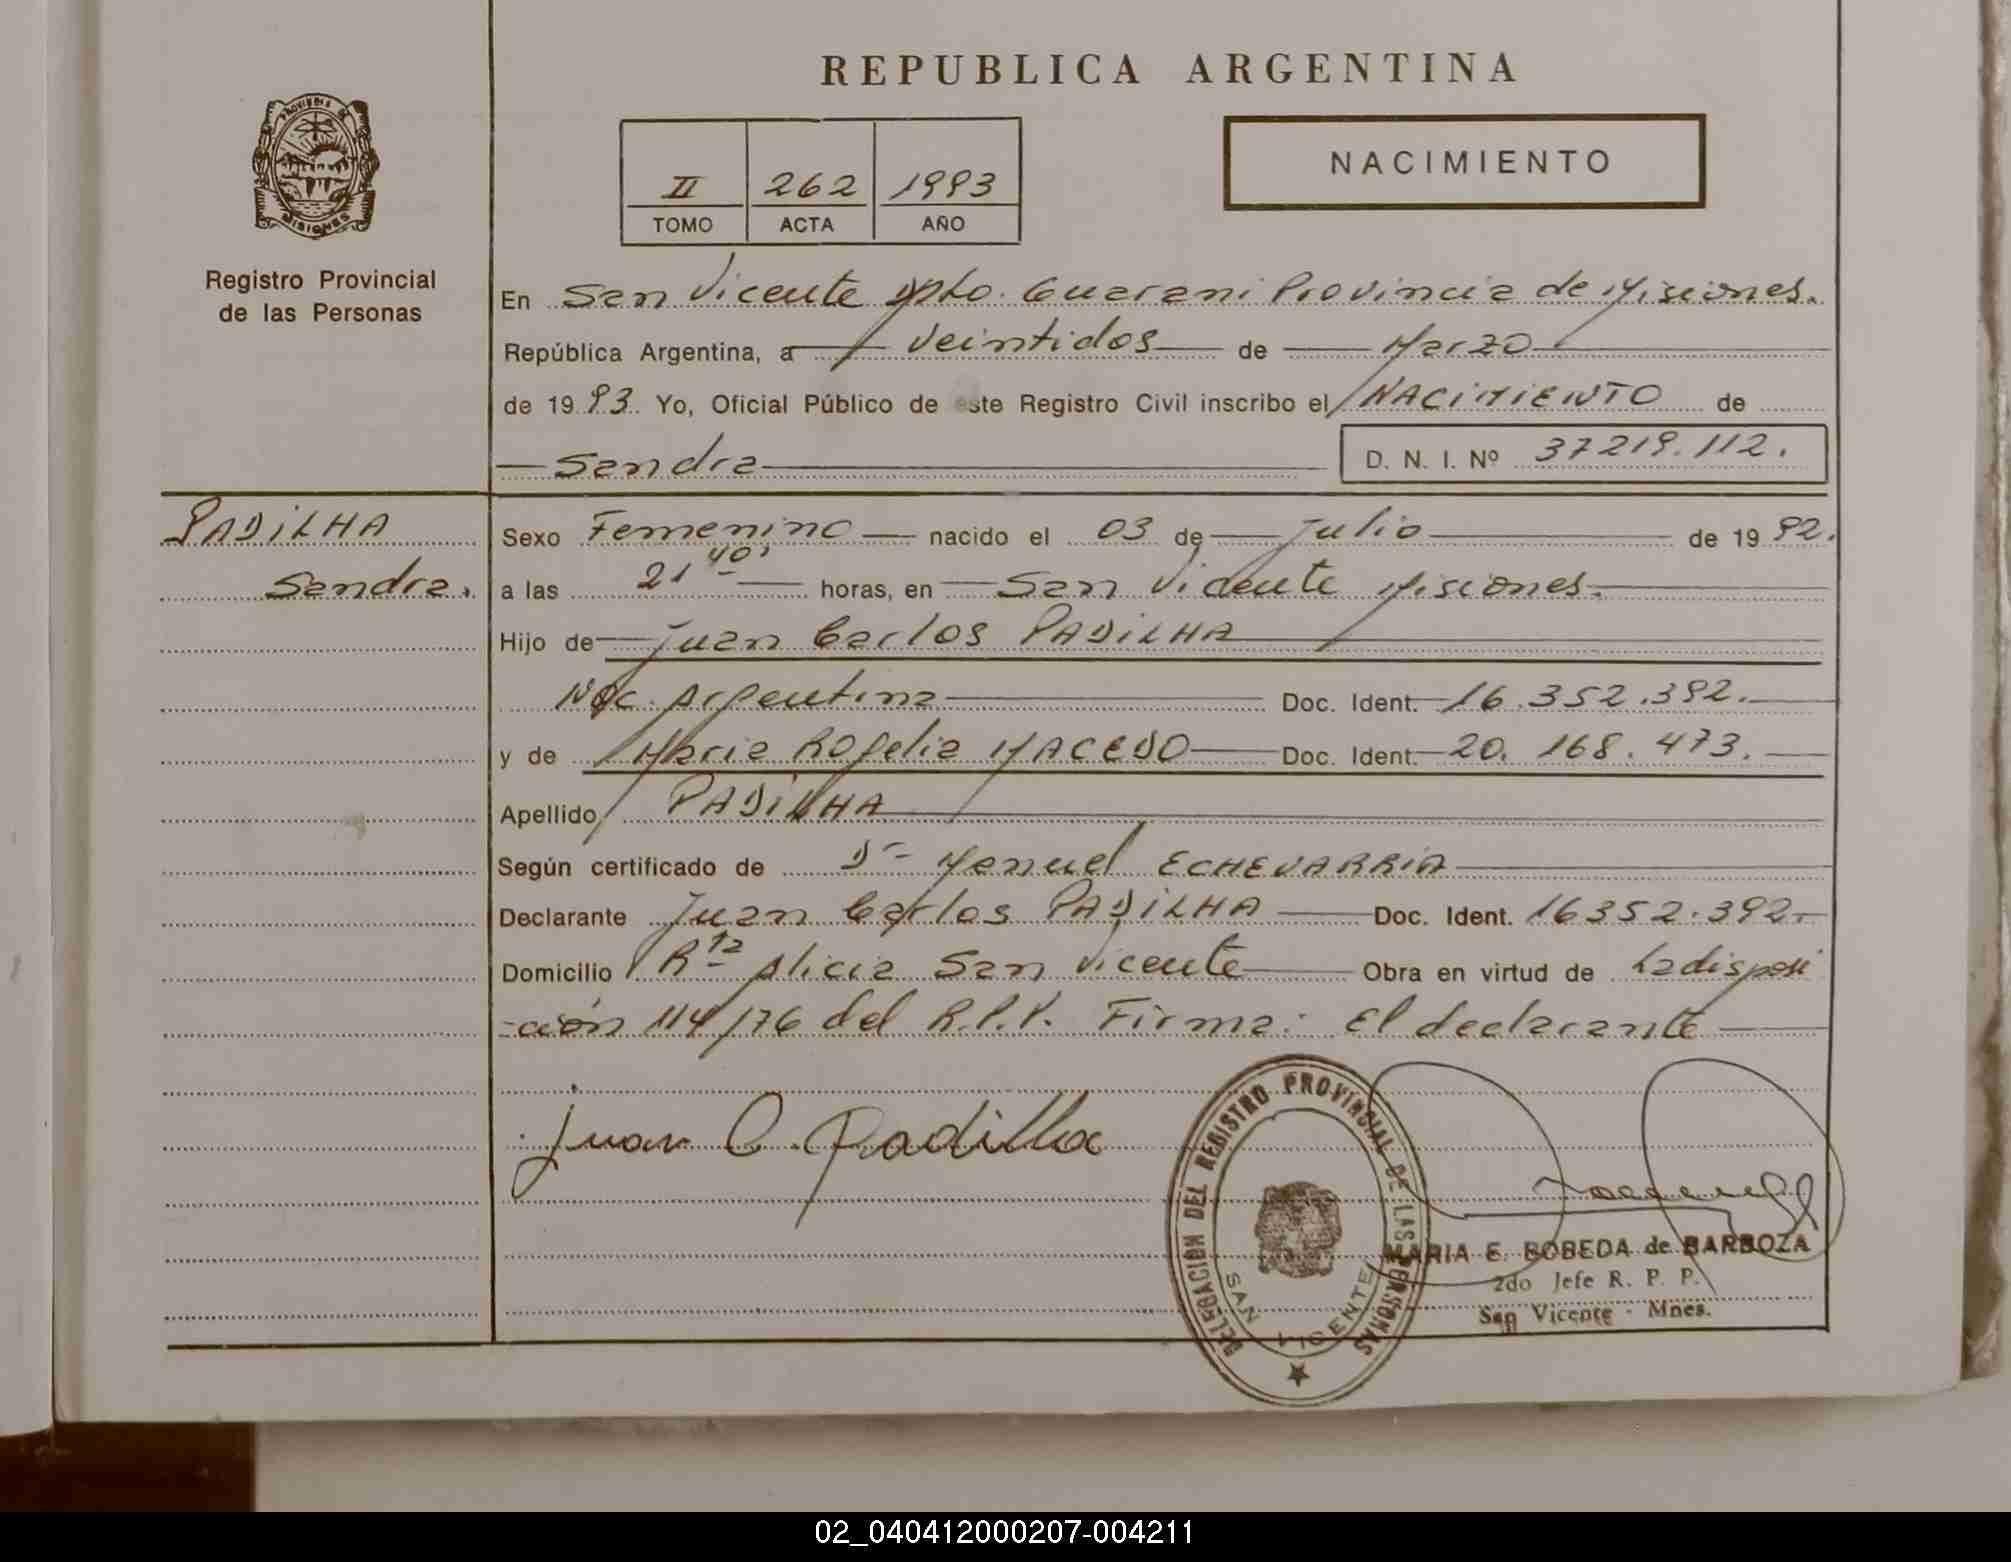 REPUBLICA ARGENTINA
PROVINCIA DE
MISIONES
Registro Provincial
de las Personas
II 262 1993
TOMO ACTA AÑO
NACIMIENTO
En San Vicente Dpto. Guarani Provincia de Misiones.
República Argentina, a veintidos de Marzo
de 1993. Yo, Oficial Público de este Registro Civil inscribo el NACIMIENTO de
Sandra
D. N. I. Nº 37219.112.
PADILHA
Sandra.
Sexo Femenino nacido el 03 de Julio de 1992.
a las 21 40' horas, en San Vicente Misiones.
Hijo de Juan Carlos PADILHA
Nac. Argentina Doc. Ident. 16.352.392.
y de Maria Rogelia MACEDO Doc. Ident. 20.168.473.
Apellido PADILHA
Según certificado de Dr Manuel ECHEVARRIA
Declarante Juan Carlos PADILHA Doc. Ident. 16352.392.
Domicilio Rta Alicia San Vicente Obra en virtud de La disposi
-ción 114/76 del R.P.P. Firma: El declarante
Juan C. Padilla
DELEGACION DEL REGISTRO PROVINCIAL DE LAS PERSONAS
SAN VICENTE
MARIA E. BOBEDA de BARBOZA
2do Jefe R. P. P.
San Vicente - Mnes.
02_040412000207-004211